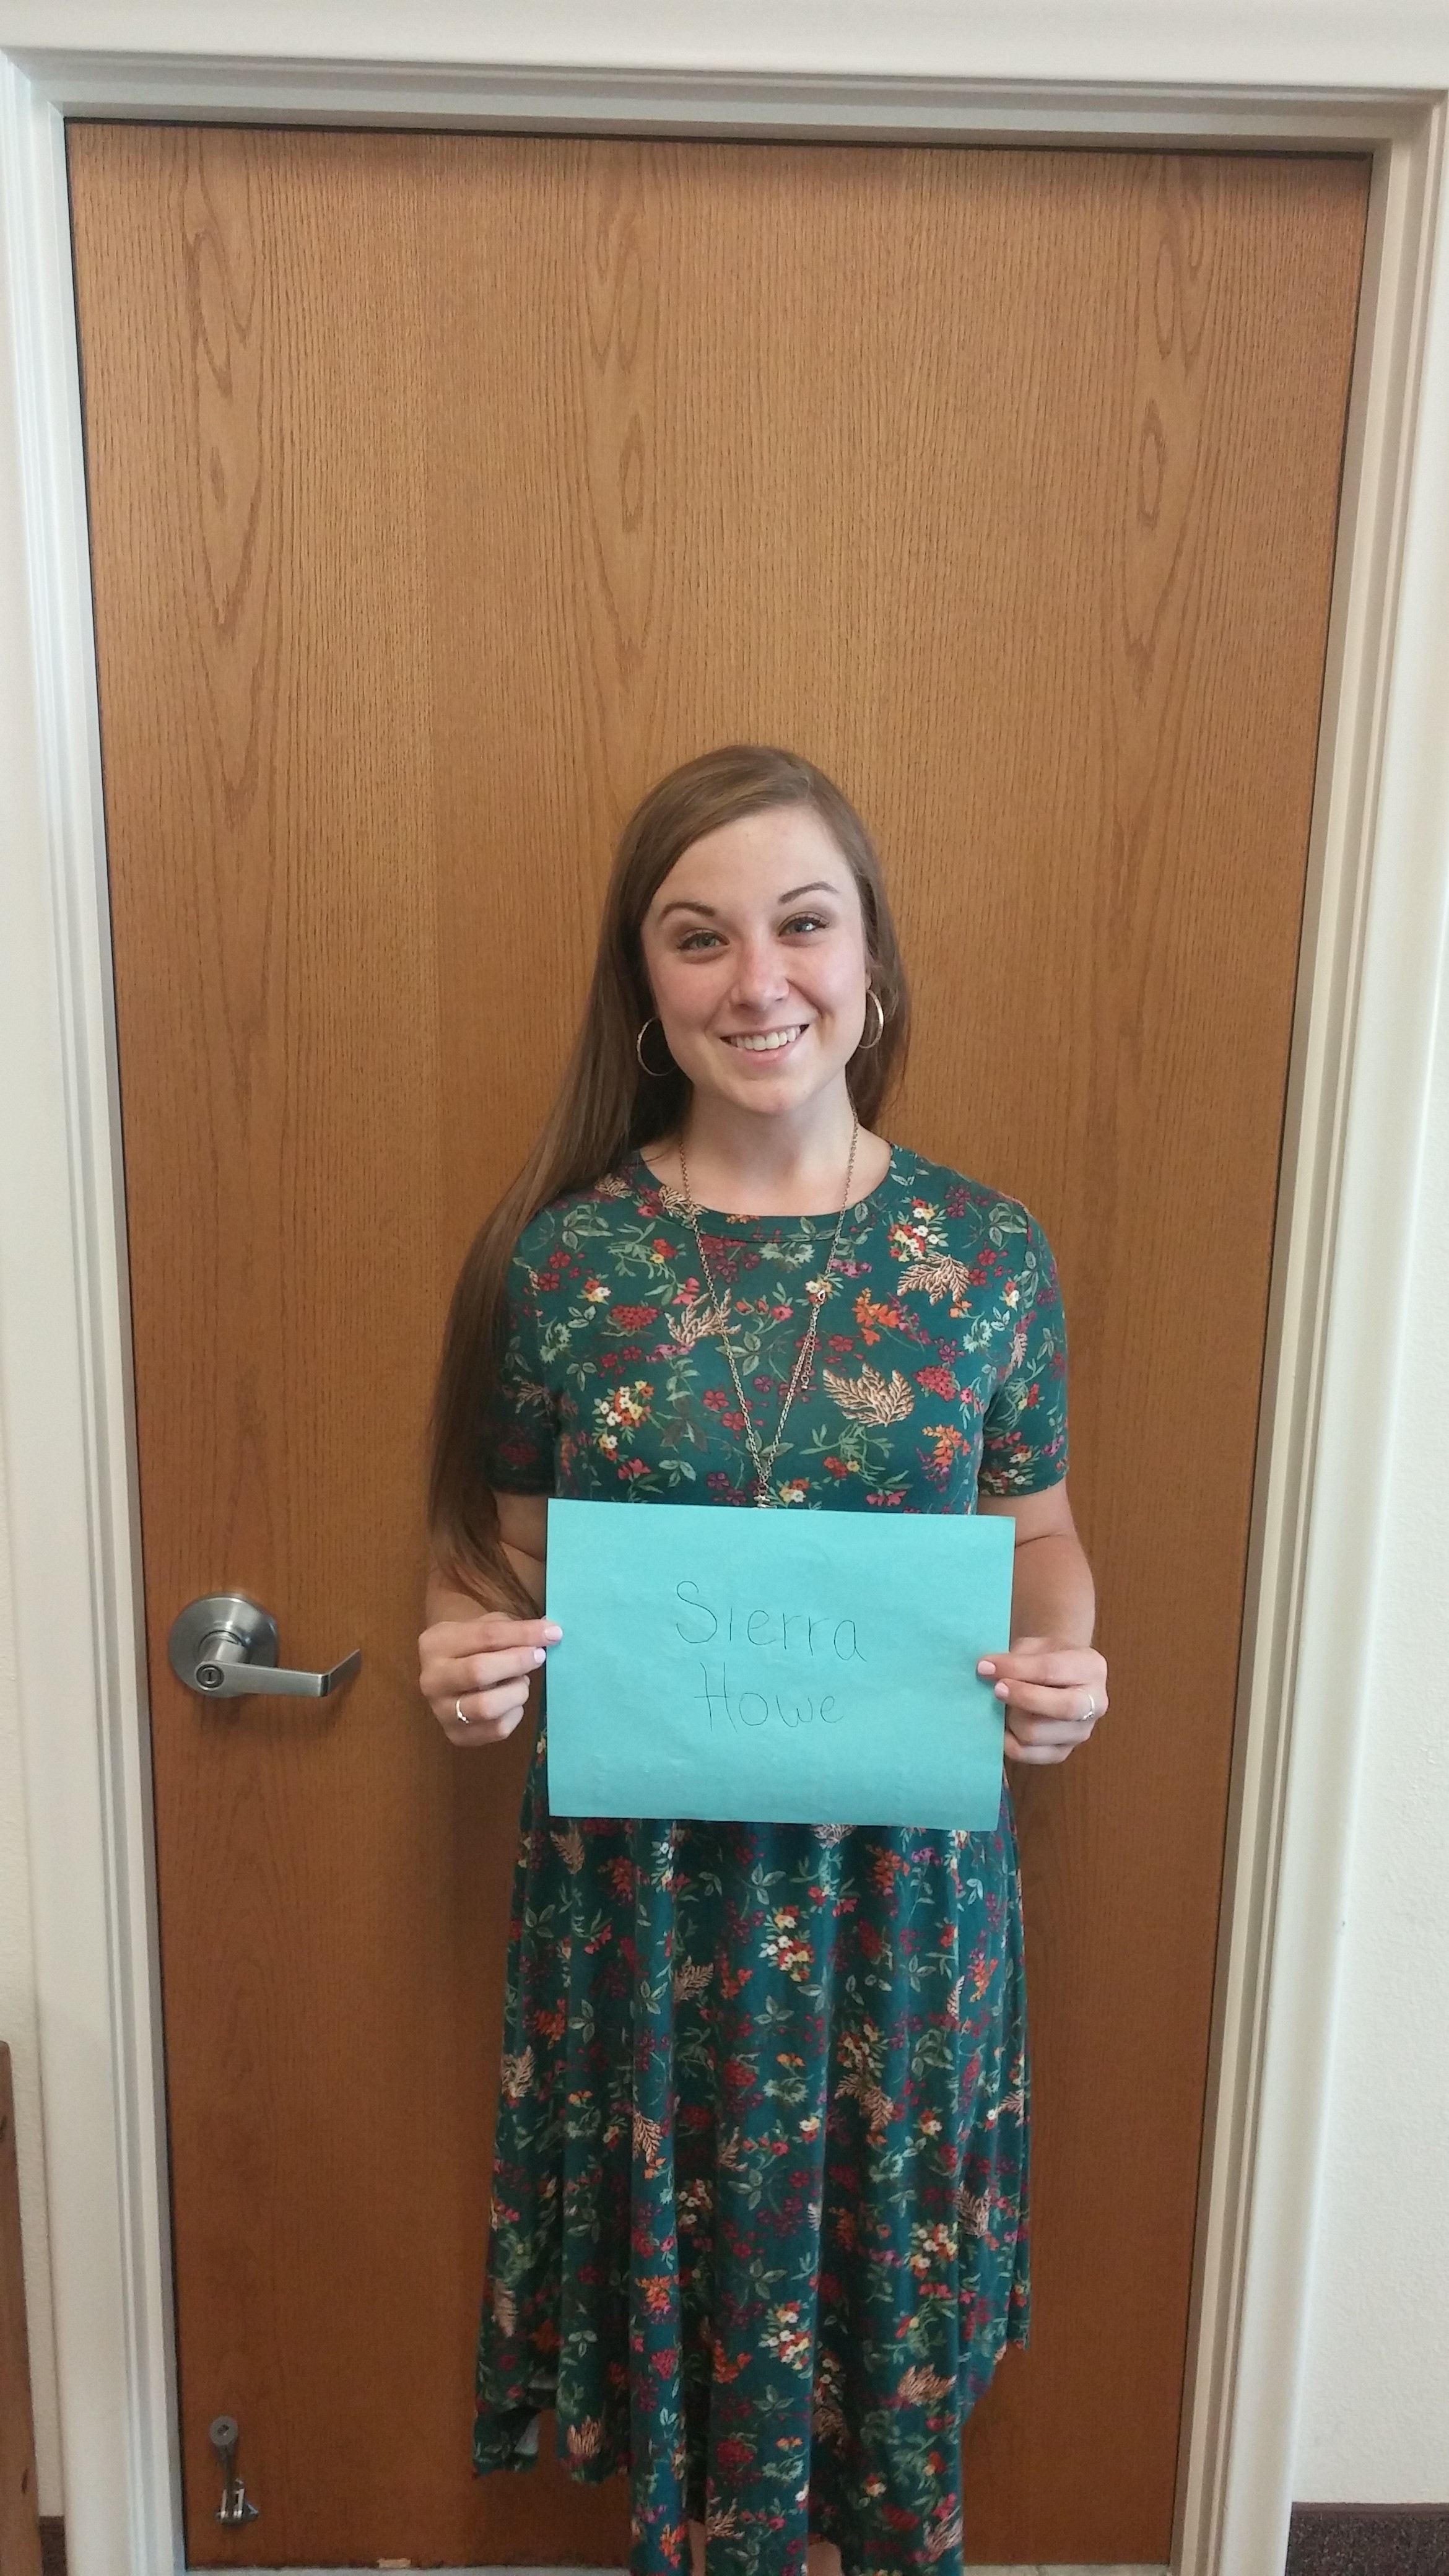 Sierra
Howe